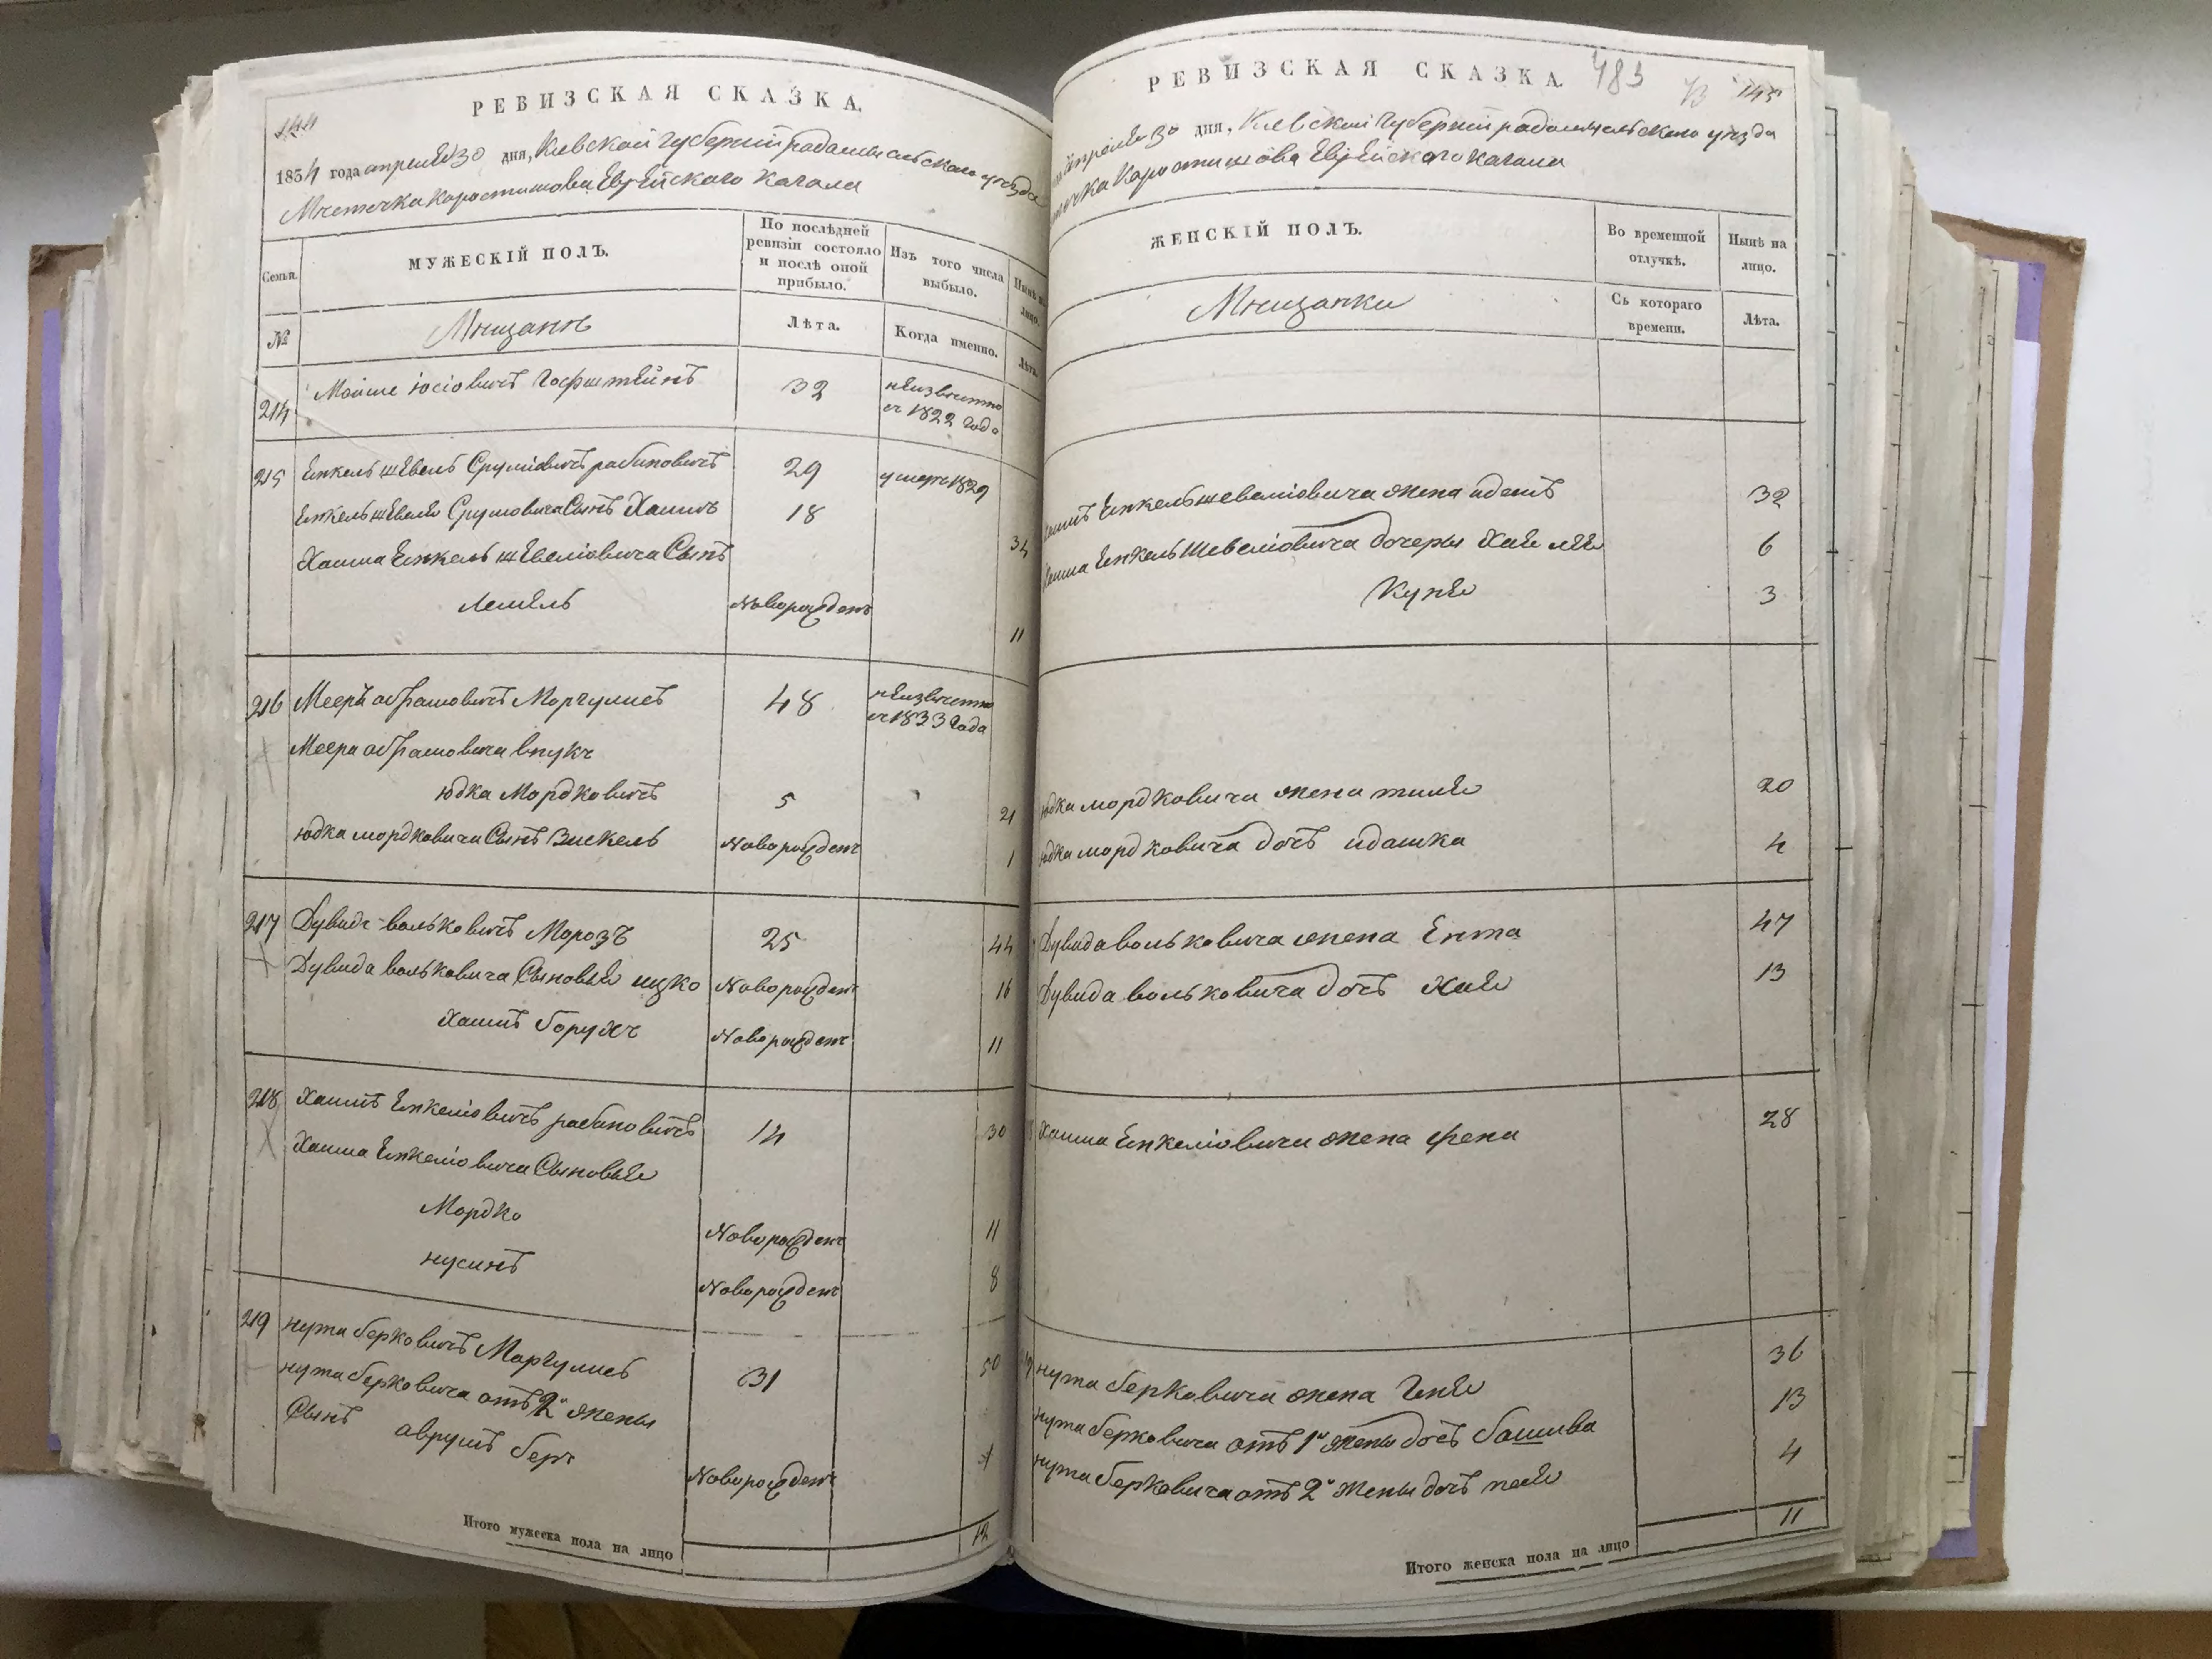 144
РЕВИЗСКАЯ СКАЗКА.
1834 года апреля 30 дня, Киевской Губернии радомысльского уезда
Мѣстечка Каростишова Еврейского кагала
Семьи.
МУЖЕСКІЙ ПОЛЪ.
По послѣдней ревизіи состояло и послѣ оной прибыло.
Изъ того числа выбыло.
Нынѣ на лицо.
№
Мѣщанъ
Лѣта.
Когда именно.
Лѣта.
214 Мошие Іосіовичъ Гофштейнъ 32 неизвѣстно
съ 1822 года
215 Енкель шЕвель Сруліовичъ рабиновичъ 29 умеръ 1829
Енкель шЕвеля Сруловича Сынъ Хаимъ 18 34
Хаима Енкель шЕвеліовича Сынъ
Лейзель Новорожденъ 11
216 Мееръ абрамовичъ Моргулисъ 48 неизвѣстно
съ 1833 года
Меера абрамовича внукъ
юдка Мордковичъ 5 21
юдка мордковича Сынъ Зискель Новорожденъ 1
217 Дувидъ вольковичъ Морозъ 25 44
Дувида вольковича Сыновья ицко Новорожденъ 16
Хаимъ борухъ Новорожденъ 11
218 Хаимъ Енкеліовичъ рабиновичъ 14 30
Хаима Енкеліовича Сыновья
Мордко Новорожденъ 11
нусинъ Новорожденъ 8
219 нута берковичъ Маргулисъ 31 50
нута берковича отъ 2й жены
Сынъ аврумъ беръ Новорожденъ
Итого мужеска пола на лицо 12
РЕВИЗСКАЯ СКАЗКА. 483 73 145
апреля 30 дня, Киевской Губернии радомысльского уезда
Каростишова Еврейского кагала
ЖЕНСКІЙ ПОЛЪ.
Во временной отлучкѣ.
Нынѣ на лицо.
Мѣщанки
Съ котораго времени.
Лѣта.
Енкель шевеліовича жена идесъ 32
Хаима Енкель Шевеліовича дочери Хая лея 6
Куня 3
юдка мордковича жена тиля 20
юдка мордковича дочь идашка 4
Дувида вольковича жена Ента 47
Дувида вольковича дочь Хая 13
Хаима Енкеліовича жена френа 28
нута берковича жена Геня 36
нута берковича отъ 1й жены дочь башива 13
нута берковича отъ 2й жены дочь песя 4
Итого женска пола на лицо 11